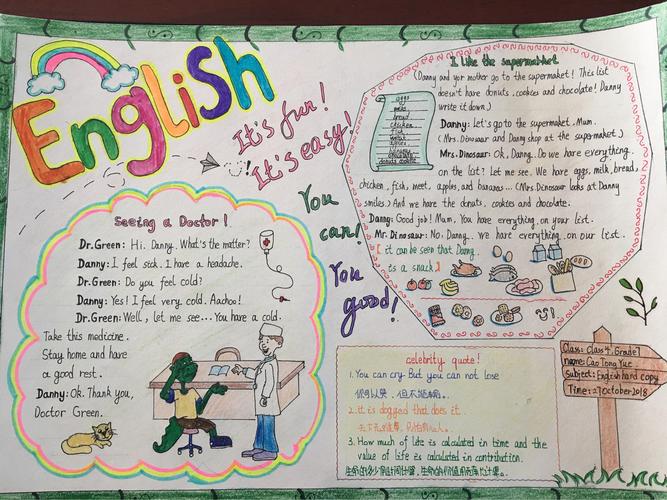 English
It's fun!
It's easy!
You
can!
You
good!
Seeing a Doctor!
Dr.Green: Hi. Danny. What's the matter?
Danny: I feel sick. I have a headache.
Dr.Green: Do you feel cold?
Danny: Yes! I feel very cold. Aachoo!
Dr.Green: Well, let me see... You have a cold.
Take this medicine.
Stay home and have
a good rest.
Danny: Ok. Thank you,
Doctor Green.
I like the supermarket
(Danny and yor mother go to the supermaket! This list
doesn't have donuts, cookies and chocolate! Danny
write it down.)
eggs
bread
chicken
fish
Danny: Let's go to the supermarket, Mum.
(Mrs. Dinosaur and Danny shop at the supermarket.)
Mrs. Dinosaur: Ok, Danny. Do we have everything
on the list? Let me see. We have eggs, milk, bread,
chicken, fish, meet, apples, and bananas... (Mrs. Dinosaur looks at Danny
smiles.) And we have the donuts, cookies and chocolate.
Danny: Good job! Mum, You have everything on your list.
Mr. Dinosaur: No, Danny. We have everything on our list.
( it can be seen that Danny
is a snack)
celebrity quote!
1. You can cry. But you can not lose
你可以哭，但不能输。
2. it is dogged that does it.
3. How much of life is calculated in time and the
value of life is calculated in contribution.
生命的多少用时间计算，生命的价值用贡献计算。
Class: Class 4. Grade1
name: Cao Tong Yue
Subject: English hard copy
Time: 27October2018